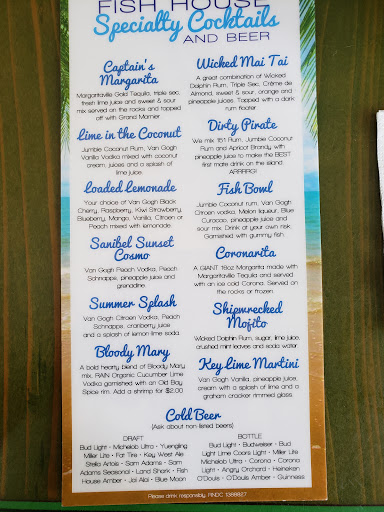 FISH HOUSE
Specialty Cocktails
AND BEER
Captain's
Margarita
Margaritaville Gold Tequila, triple sec,
fresh lime juice and sweet & sour
mix served on the rocks and topped
off with Grand Marnier
Lime in the Coconut
Jumbie Coconut Rum, Van Gogh
Vanilla Vodka mixed with coconut
cream, juices and a splash of
lime juice.
Loaded Lemonade
Your choice of Van Gogh Black
Cherry, Raspberry, Kiwi Strawberry,
Blueberry, Mango, Vanilla, Citroen or
Peach mixed with lemonade
Sanibel Sunset
Cosmo
Van Gogh Peach Vodka, Peach
Schnapps, pineapple juice and
grenadine.
Summer Splash
Van Gogh Citroen Vodka, Peach
Schnapps, cranberry juice
and a splash of lemon lime soda
Bloody Mary
A bold hearty blend of Bloody Mary
mix, RAIN Organic Cucumber Lime
Vodka garnished with an Old Bay
Spice rim. Add a shrimp for $2.00
Wicked Mai Tai
A great combination of Wicked
Dolphin Rum, Triple Sec, Crème de
Almond, sweet & sour, orange and
pineapple juices. Topped with a dark
rum floater
Dirty Pirate
We mix 151 Rum, Jumbie Coconut
Rum and Apricot Brandy with
pineapple juice to make the BEST
first mate drink on the island.
ARRRRG!
Fish Bowl
Jumbie Coconut rum, Van Gogh
Citroen vodka, Melon liqueur, Blue
Curacao, pineapple juice and
sour mix. Drink at your own risk.
Garnished with gummy fish.
Coronarita
A GIANT 18oz Margarita made with
Margaritaville Tequila and served
with an ice cold Corona. Served on
the rocks or frozen.
Shipwrecked
Mojito
Wicked Dolphin Rum, sugar, lime juice,
crushed mint leaves and soda water
Key Lime Martini
Van Gogh Vanilla, pineapple juice,
cream with a splash of lime and a
graham cracker rimmed glass.
Cold Beer
(Ask about non listed beers)
DRAFT
Bud Light • Michelob Ultra • Yuengling
Miller Lite • Fat Tire • Key West Ale
Stella Artois • Sam Adams • Sam
Adams Seasonal • Land Shark • Fish
House Amber • Jai Alai • Blue Moon
BOTTLE
Bud Light • Budweiser • Bud
Light Lime Coors Light • Miller Lite
Michelob Ultra • Corona • Corona
Light • Angry Orchard • Heineken
O'Douls • O'Douls Amber • Guinness
Please drink responsibly.